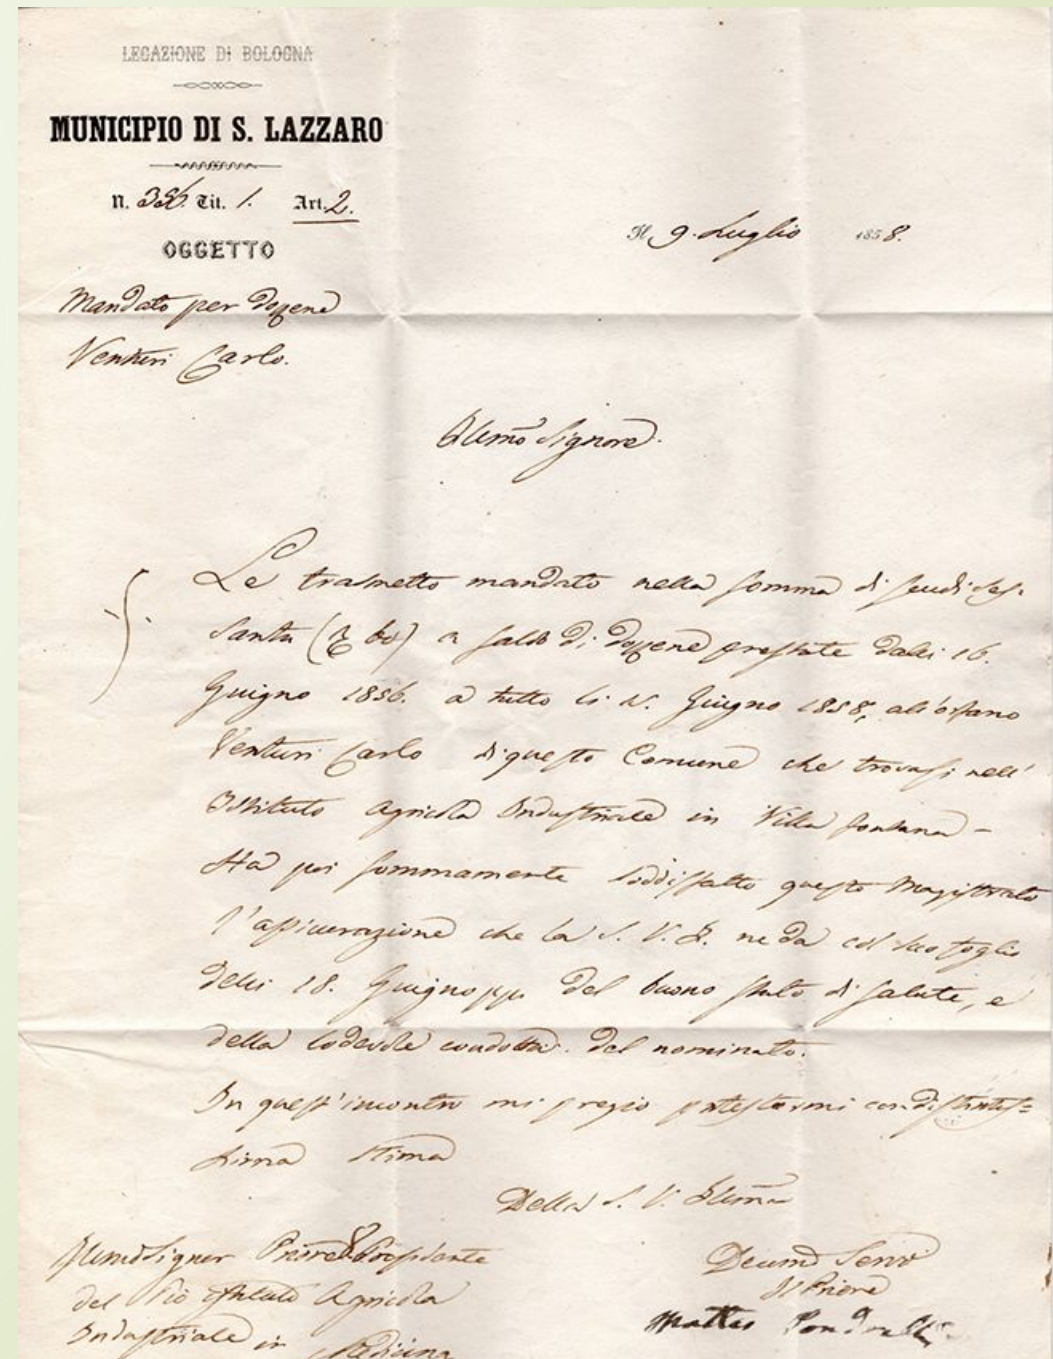 LEGAZIONE DI BOLOGNA
MUNICIPIO DI S. LAZZARO
N. 356. Tit. 1. Art. 2.
OGGETTO
Mandato per dozzene
Venturi Carlo.
Il 9. Luglio 1858.
Illmo Signore.
Le trasmetto mandato nella somma di scudi ses-
santa ( 60) a saldo di dozzene prestate dalli 16.
Giugno 1856. a tutto li Giugno 1858, all'orfano
Venturi Carlo di questo Comune che trovasi nell'
Istituto Agricola Industriale in Villa Fontana -
Ha poi sommamente soddisfatto questo Magistrato
l'assicurazione che la S. V. I. ne da col suo foglio
delli 18. Giugno pp. del buono stato di salute, e
della lodevole condotta del nominato.
In quest'incontro mi pregio protestarmi con distintis=
sima stima
Della S. V. Illma
Illmo Signor Priore Presidente
del Pio Istituto Agricola
Industriale in Medicina
Devmo Servo
Il Priore
Matteo